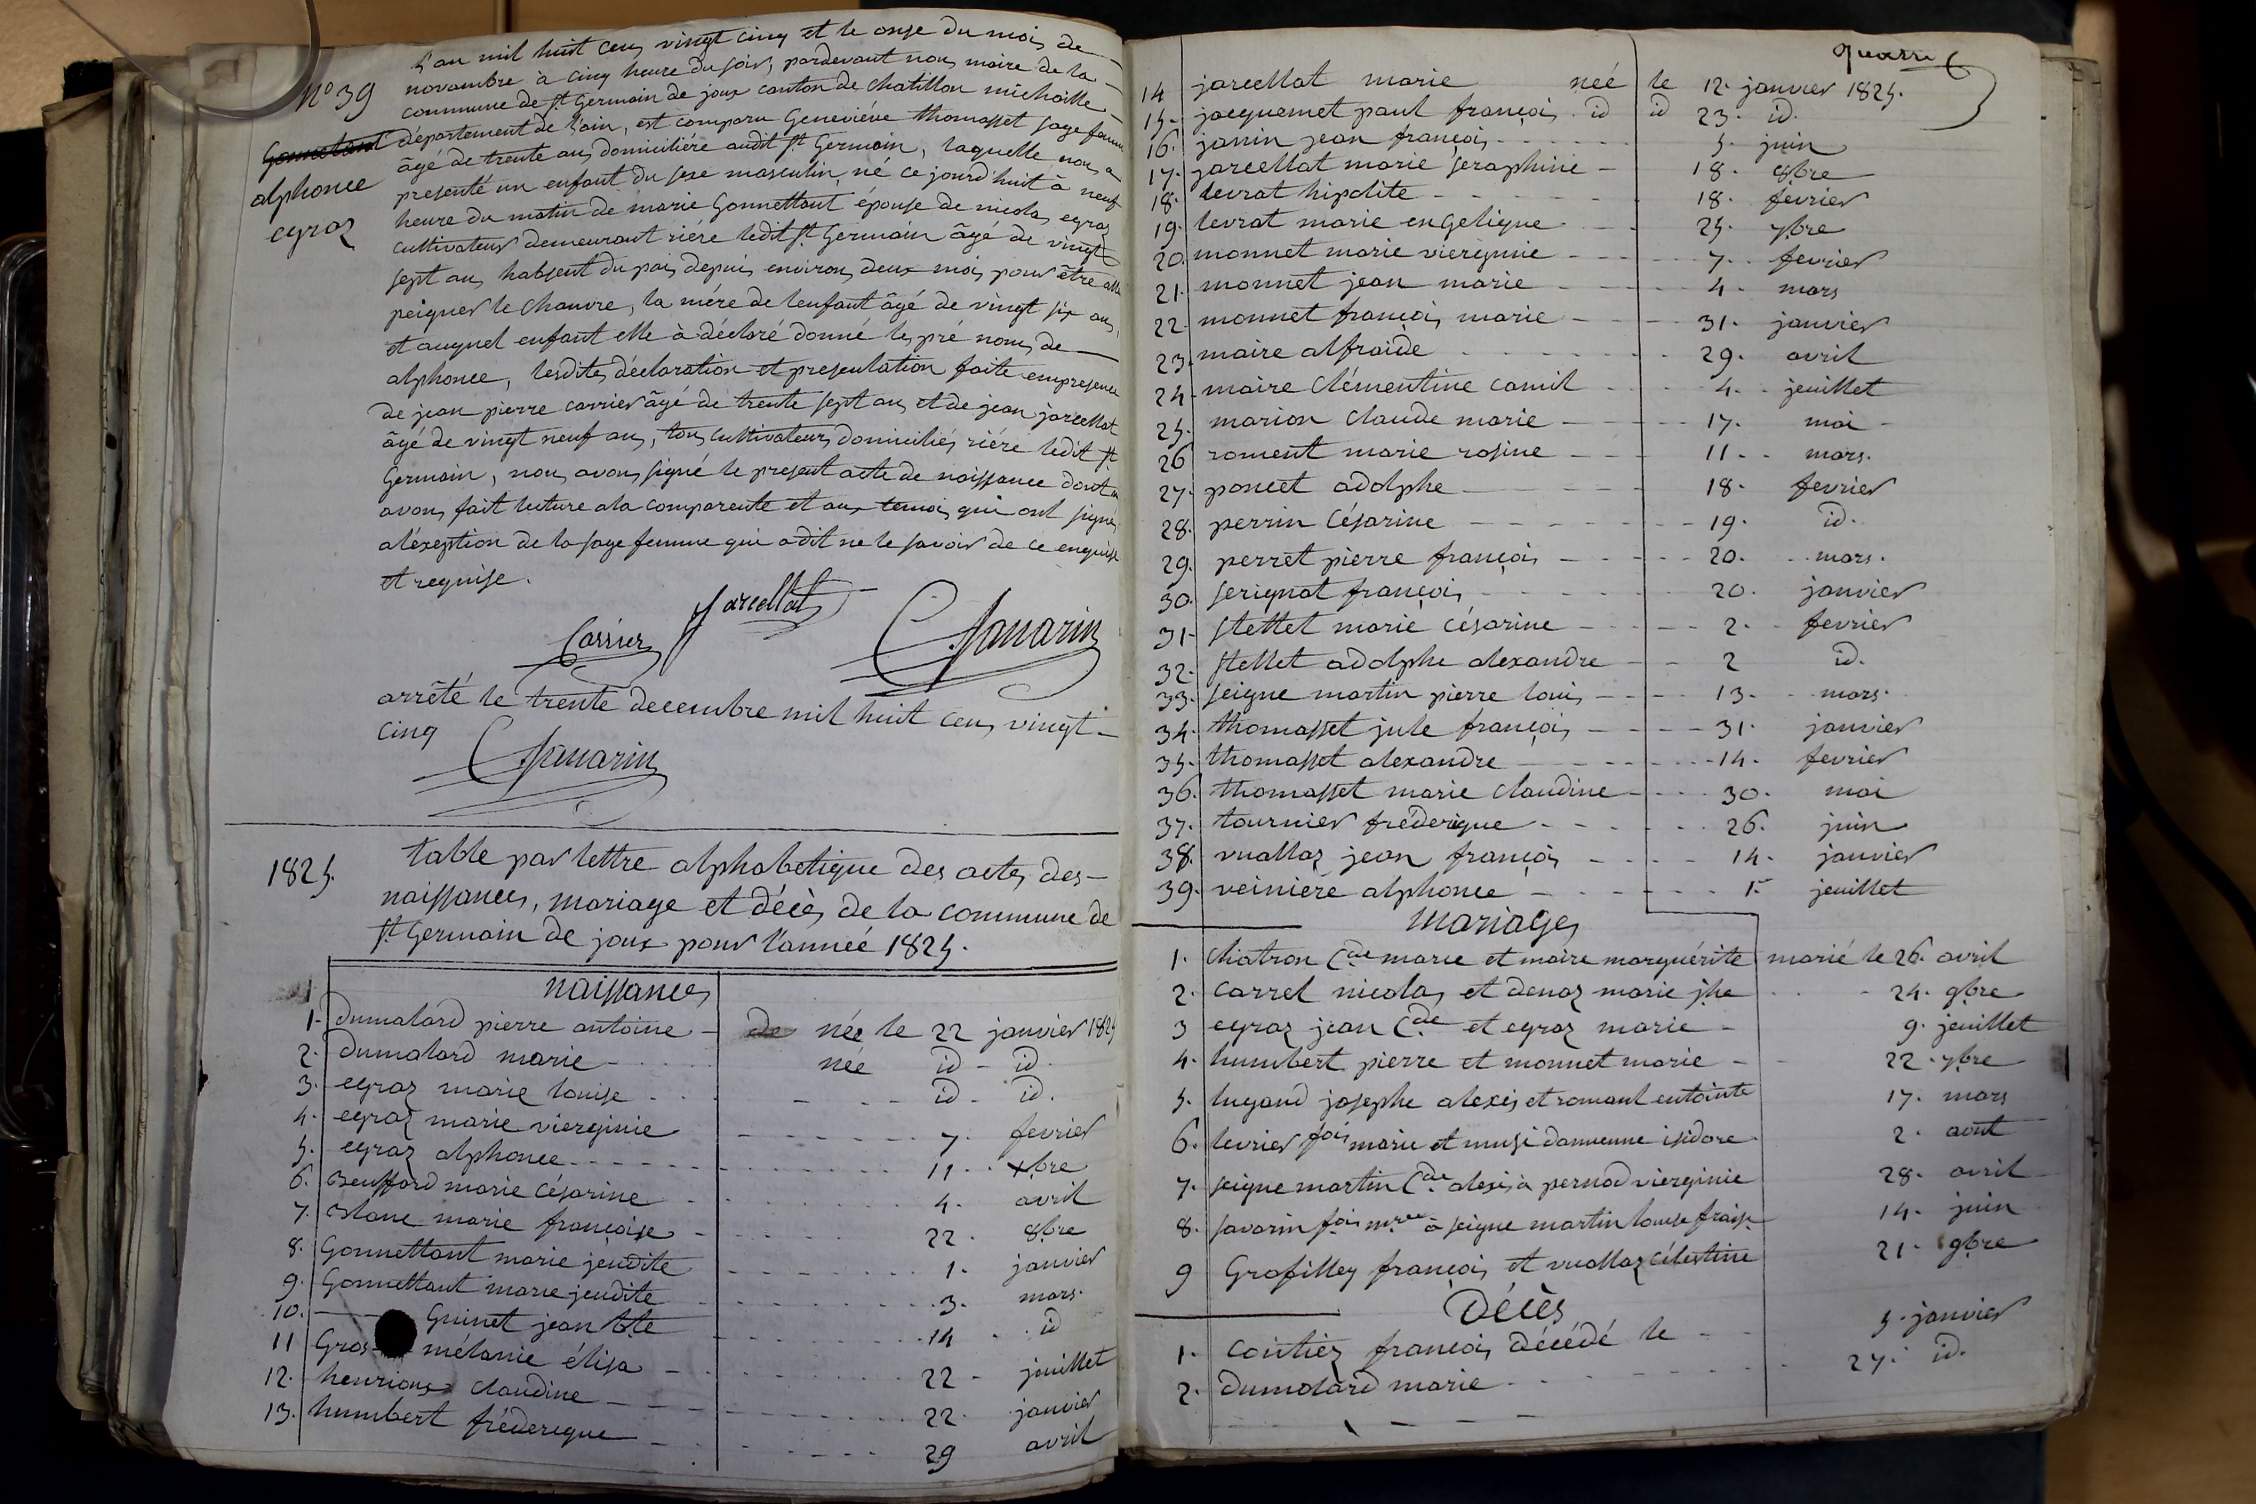 N° 39
Gonnetant
alphonce
egraz
L'an mil huit cens vingt cinq et le onze du mois de
novembre à cinq heure du soir, pardevant nous maire de la
commune de St Germain de joux canton de chatillon michaille
département de l'ain, est comparu Geneviéve thomasset sage famme
âgé de trente ans domiciliére audit St Germain, laquelle nous a
presenté un enfant du sexe masculin, né ce jourd'huit à neuf
heure du matin de marie Gonnettant épouse de nicolas egraz
cultivateur demeurant riére ledit St Germain âgé de vingt
sept ans, habsent du pais depuis environs deux mois pour être allé
peigner le chanvre, la mére de lenfant âgé de vingt six ans,
et auquel enfant elle à déclaré donné les pré noms de
alphonce, lesdites déclaration et presentation faite empresence
de jean pierre carrier âgé de trente sept ans et de jean jarcellat
âgé de vingt neuf ans, tous cultivateurs domiciliés riére ledit St
Germain, nous avons signé le present acte de naissance dont
avons fait lecture ala comparente et aux temois qui ont signé
aléxeption de la sage femme qui adit ne le savoir de ce enquise
et requise.
Jarcellat
Carrier
arrêté le trente decembre mil huit cens vingt
cinq
1825. table par lettre alphabetique des actes des
naissances, mariage et décès de la commune de
St Germain de joux pour l'anneé 1825.
naissances
1. dumalard pierre antoine née le 22 janvier 1825
2. dumalard marie née id id
3. egraz marie louise id id.
4. egraz marie vierginie 7. fevrier
5. egraz alphonce 11 xbre
6. marie Césarine 4. avril
7. marie françoise 22. 8bre
8. Gonnettant marie jeudite 1. janvier
9. Gonnettant marie jeudite 3. mars.
10. Guinet jean bte 14 id
11 Gros mélanie élisa 22 juillet
12. henrioux claudine 22 janvier
13. humbert fréderique 29 avril
14 jarcellat marie neé le 12. janvier 1825.
15. jacquemet paul françois id id 23. id.
16. janin jean françois 5. juin
17. jarcellat marie seraphine 18. 8bre
18. levrat hipolite 18. fevrier
19. levrat marie engelique 25. 7bre
20. monnet marie vierginie 7. fevrier
21. monnet jean marie 4. mars
22 monnet françois marie 31. janvier
23. maire alfraide 29. avril
24. maire Clémentine camil 4. jeuillet
25. marion claude marie 17. mai
26 roment marie rosine 11. mars.
27. poncet adolphe 18. fevrier
28. perrin Césarine 19. id.
29. perret pierre françois 20. mars.
30. serignat françois 20. janvier
31. stettet marie césarine 2. fevrier
32. stettet adolphe alexandre 2 id.
33. seigne martin pierre louis 13. mars.
34. thomasset jule françois 31. janvier
35. thomasset alexandre 14. fevrier
36. thomasset marie claudine 30. mai
37. tournier fréderique 26. juin
38. vuallaz jean françois 14. janvier
39. veiniere alphonce 1er jeuillet
mariages
1. Chatron Cde marie et maire marguérite marié le 26. avril
2. carrel nicolas et denoz marie jhe 24. 9bre
3 egraz jean Cde et egraz marie 9. jeuillet
4. humbert pierre et monnet marie 22. 7bre
5. lugand josephe alexis et romant entointe 17. mars
6. levrier fois marie et isidore 2. aout
7. seigne martin Cde alexis à pernod vierginie 28. avril
8. savarin fois à seigne martin louise 14. juin
9 Grosilley françois et vuallaz célestine 21. 9bre
Décès
1. Coutiez françois décédé le 5. janvier
2. dumolard marie 27. id.